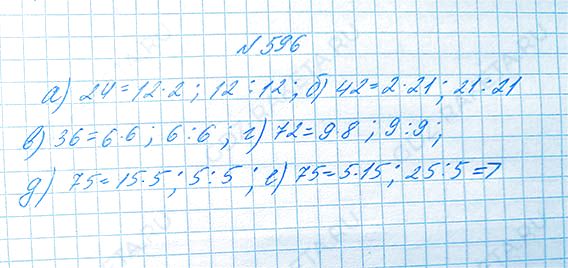 №596
а) 24=12·2; 12:12; б) 42=2·21; 21:21
в) 36=6·6; 6:6; г) 72=9·8; 9:9;
д) 75=15·5; 5:5; е) 75=5·15; 25:5=>